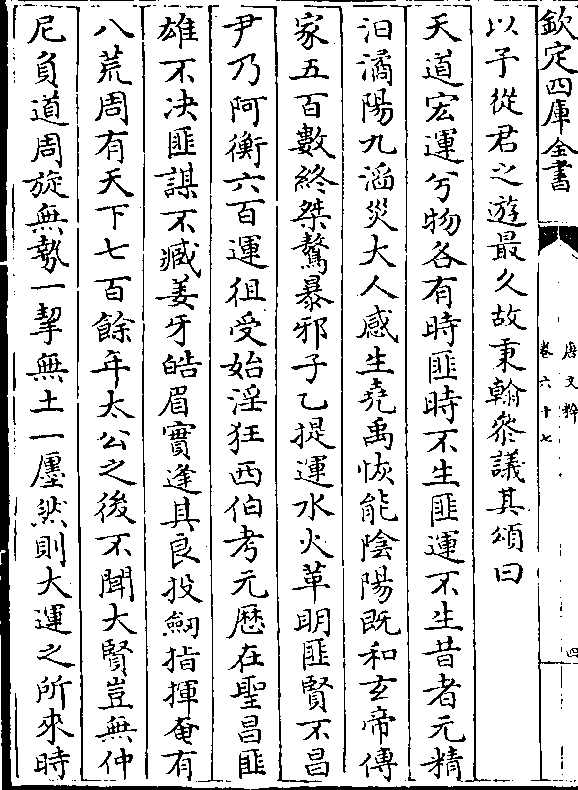 欽定四庫全書
唐文粹
卷六十七
四
以子從君之遊最久故秉翰參議其頌曰
天道宏運兮物各有時匪時不生匪運不生昔者元精
汩潏陽九滔災大人感生堯禹恢能陰陽既和玄帝傳
家五百數終桀驁暴邪子乙提運水火革明匪賢不昌
尹乃阿衡六百運徂受始淫狂西伯考元歴在聖昌匪
雄不決匪謀不臧姜牙皓眉實逢其良投劒指揮奄有
八荒周有天下七百餘年太公之後不聞大賢豈無仲
尼負道周旋無勢一挈無土一㕓然則大運之所來時